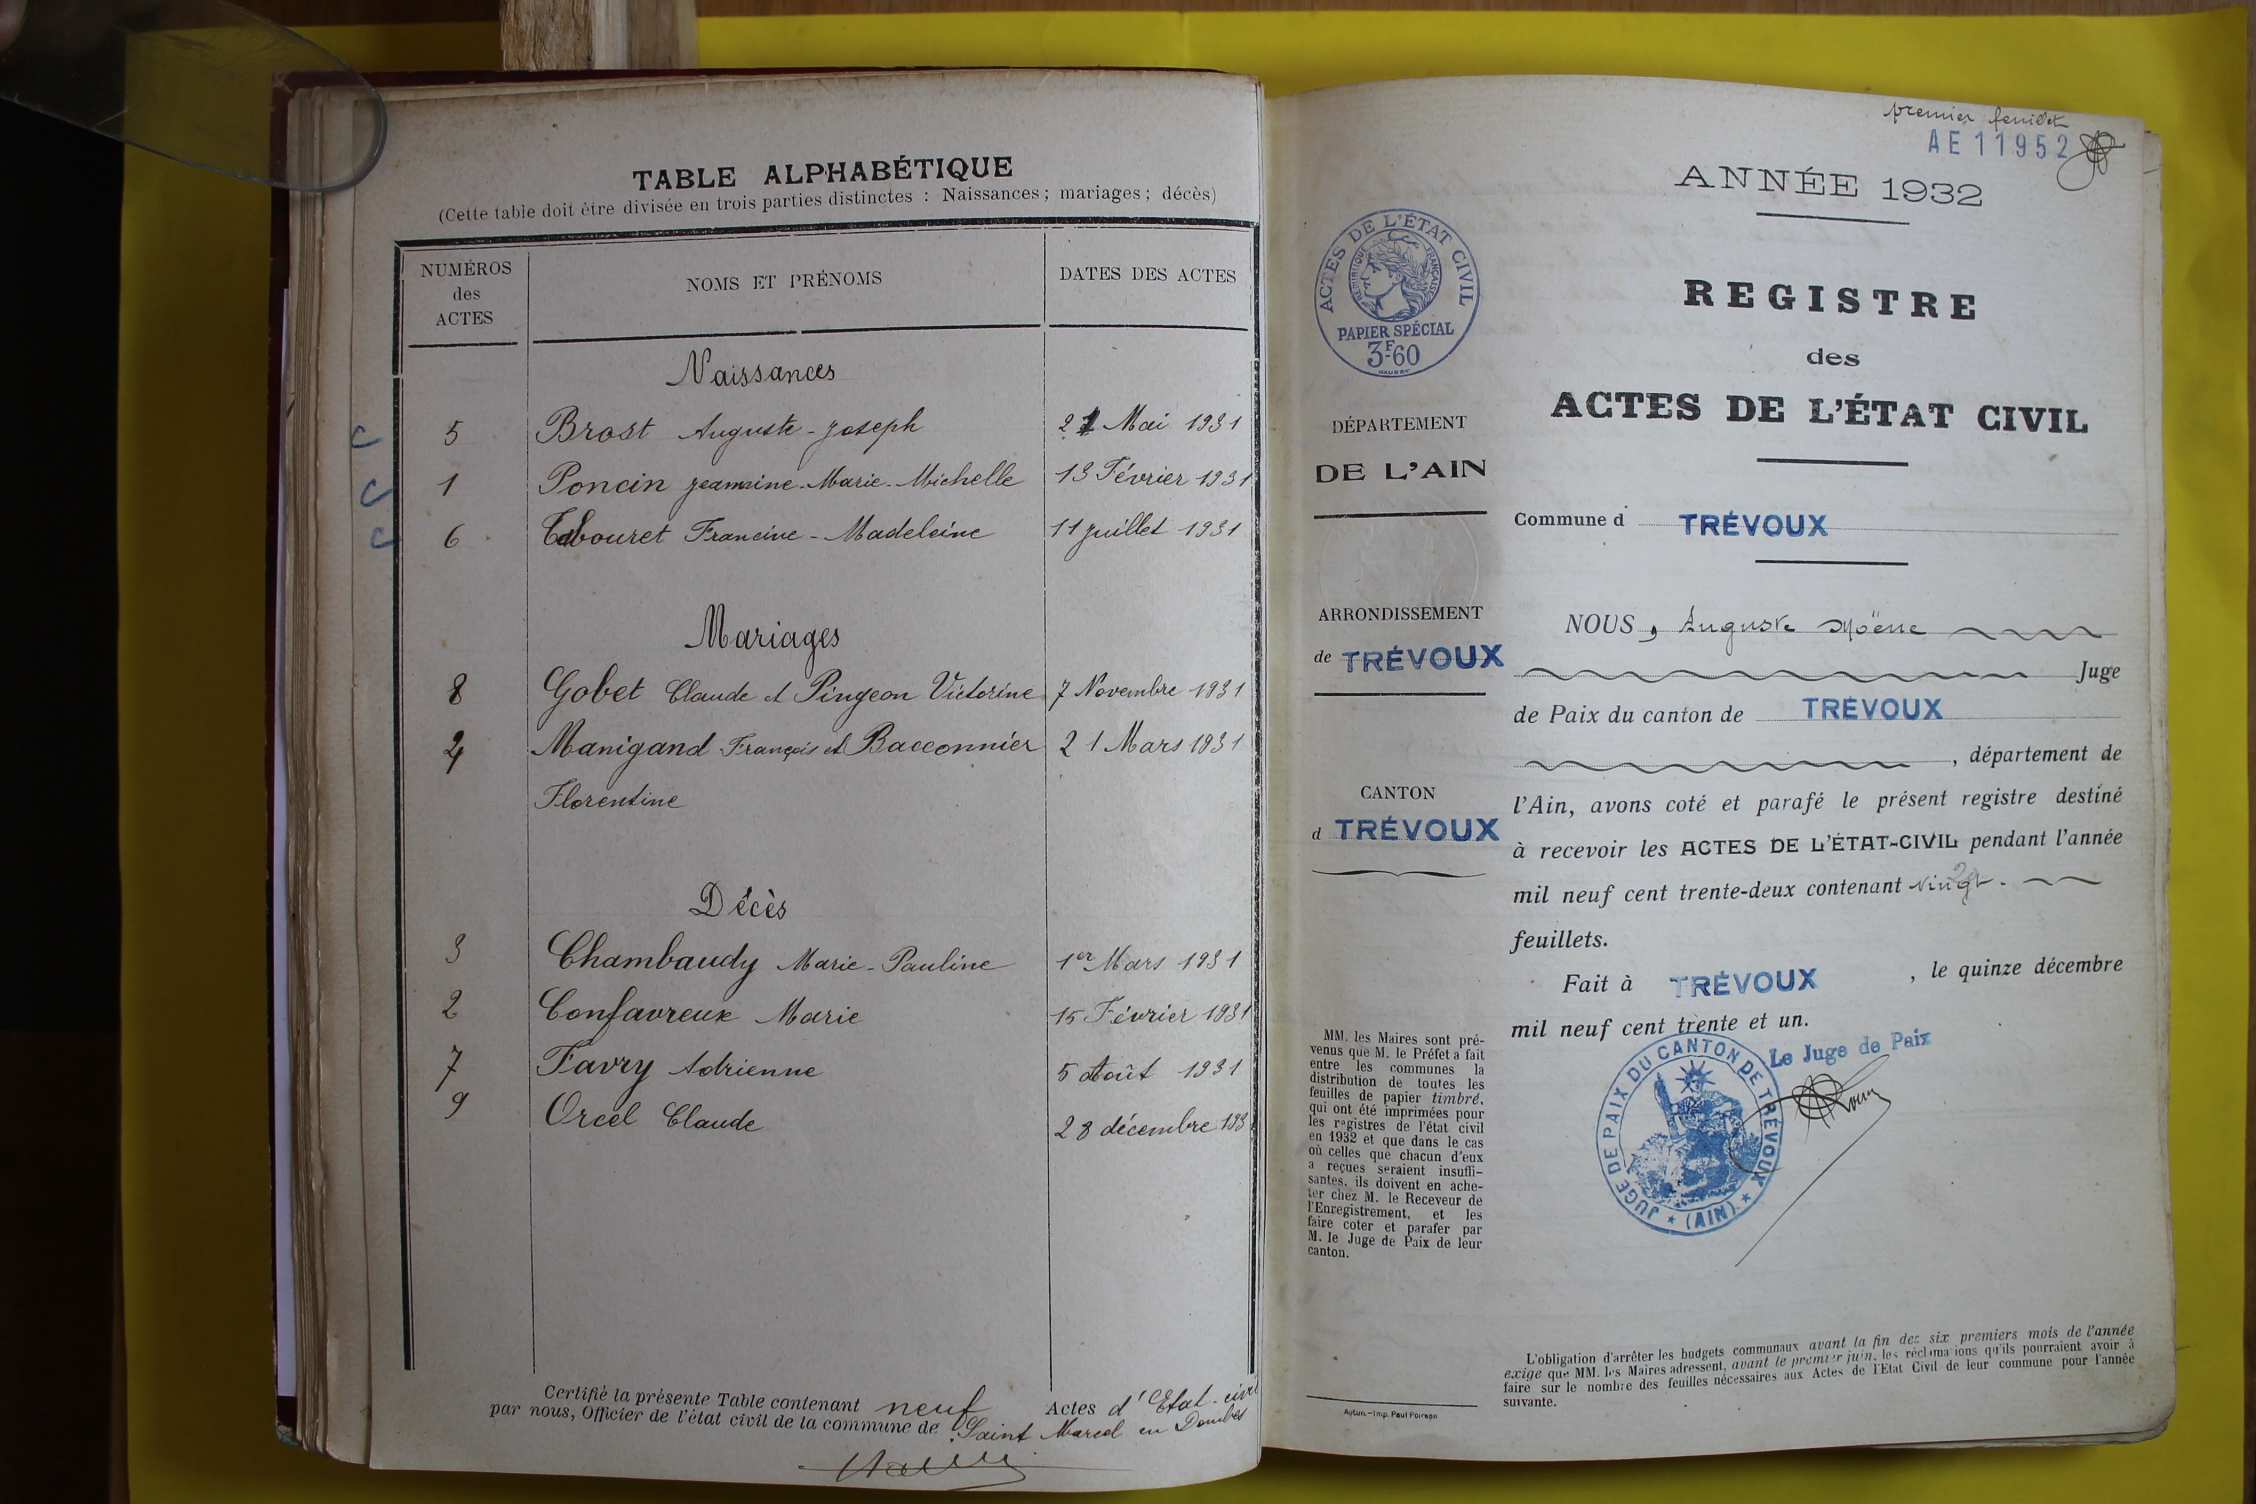 TABLE ALPHABÉTIQUE
(Cette table doit être divisée en trois parties distinctes : Naissances ; mariages ; décès)
NUMÉROS
des
ACTES
NOMS ET PRÉNOMS
DATES DES ACTES
Naissances
5 Brost Auguste-Joseph 21 Mai 1931
1 Poncin Jeannine-Marie-Michelle 13 Février 1931
6 Tabouret Francine-Madeleine 11 juillet 1931
Mariages
8 Gobet Claude et Pingeon Victorine 7 Novembre 1931
4 Manigand François et Bacconnier 21 Mars 1931
Florentine
Décès
3 Chambaudy Marie-Pauline 1er Mars 1931
2 Confavreux Marie 15 Février 1931
7 Favry Adrienne 5 Août 1931
9 Orcel Claude 28 décembre 193
Certifié la présente Table contenant neuf Actes d'Etat-civil
par nous, Officier de l'état civil de la commune de Saint Marcel en Dombes
premier feuillet
AE 11952
ANNÉE 1932
REGISTRE
des
ACTES DE L'ÉTAT CIVIL
ACTES DE L'ÉTAT CIVIL
RÉPUBLIQUE FRANÇAISE
PAPIER SPÉCIAL
3F60
DÉPARTEMENT
DE L'AIN
ARRONDISSEMENT
de TRÉVOUX
CANTON
d TRÉVOUX
MM. les Maires sont pré-
venus que M. le Préfet a fait
entre les communes la
distribution de toutes les
feuilles de papier timbré,
qui ont été imprimées pour
les registres de l'état civil
en 1932 et que dans le cas
où celles que chacun d'eux
a reçues seraient insuffi-
santes, ils doivent en ache-
ter chez M. le Receveur de
l'Enregistrement, et les
faire coter et parafer par
M. le Juge de Paix de leur
canton.
Commune d TRÉVOUX
NOUS, Auguste Moëne
Juge
de Paix du canton de TRÉVOUX
, département de
l'Ain, avons coté et parafé le présent registre destiné
à recevoir les ACTES DE L'ÉTAT-CIVIL pendant l'année
mil neuf cent trente-deux contenant vingt
feuillets.
Fait à TRÉVOUX, le quinze décembre
mil neuf cent trente et un.
Le Juge de Paix
JUGE DE PAIX DU CANTON DE TRÉVOUX
(AIN)
L'obligation d'arrêter les budgets communaux avant la fin des six premiers mois de l'année
exige que MM. les Maires adressent, avant le premier juin, les réclamations qu'ils pourraient avoir à
faire sur le nombre des feuilles nécessaires aux Actes de l'Etat Civil de leur commune pour l'année
suivante.
Autun.-Imp. Paul Poirson